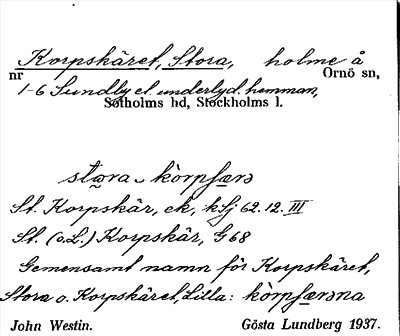 Korpskäret, Stora, holme å
nr Ornö sn,
1-6 Sundby el. underlyd. hemman,
Sotholms hd, Stockholms l.
stωra - kὸrpʃærə
St. Korpskär, ek, kSj 62.12.III
St. (o.L.) Korpskär, G68
Gemensamt namn för Korpskäret,
Stora o. Korpskäret, Lilla: kὸrpʃærəna
John Westin. Gösta Lundberg 1937.